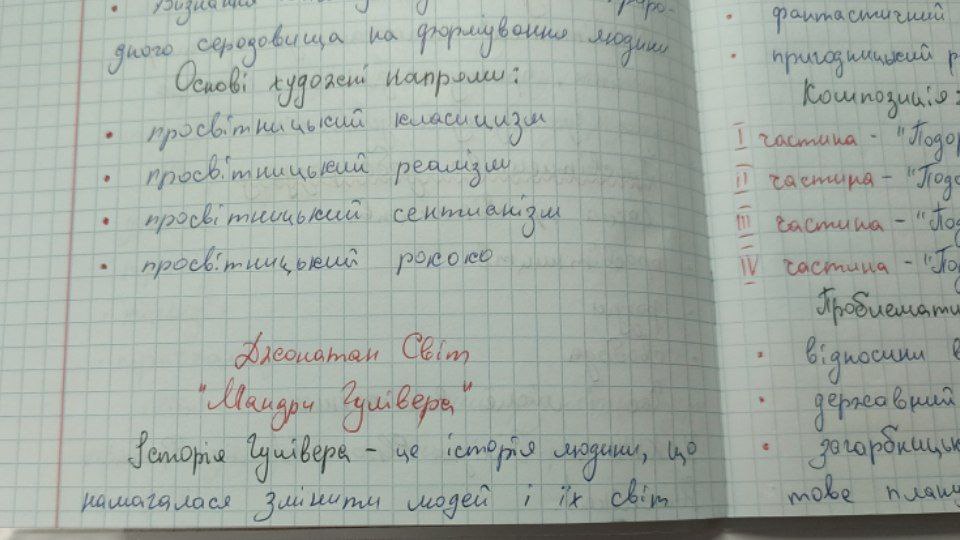 Визнання
дного серодовища на формування людини
Основі художні напрями:
• просвітницький класицизм
• просвітницький реалізм
• просвітницький сентианізм
• просвітницький рококо
Джонатан Світ
"Мандри Гулівера"
Історія Гулівера - це історія людини, що
намагалася змінити людей і їх світ
• фантастичний
• пригодницький
Композиція:
I частина - "Подо
II частина - "Подо
III частина - "Под
IV частина - "По
Проблемати
• відносини
• державний
• загарбницьк
тове план